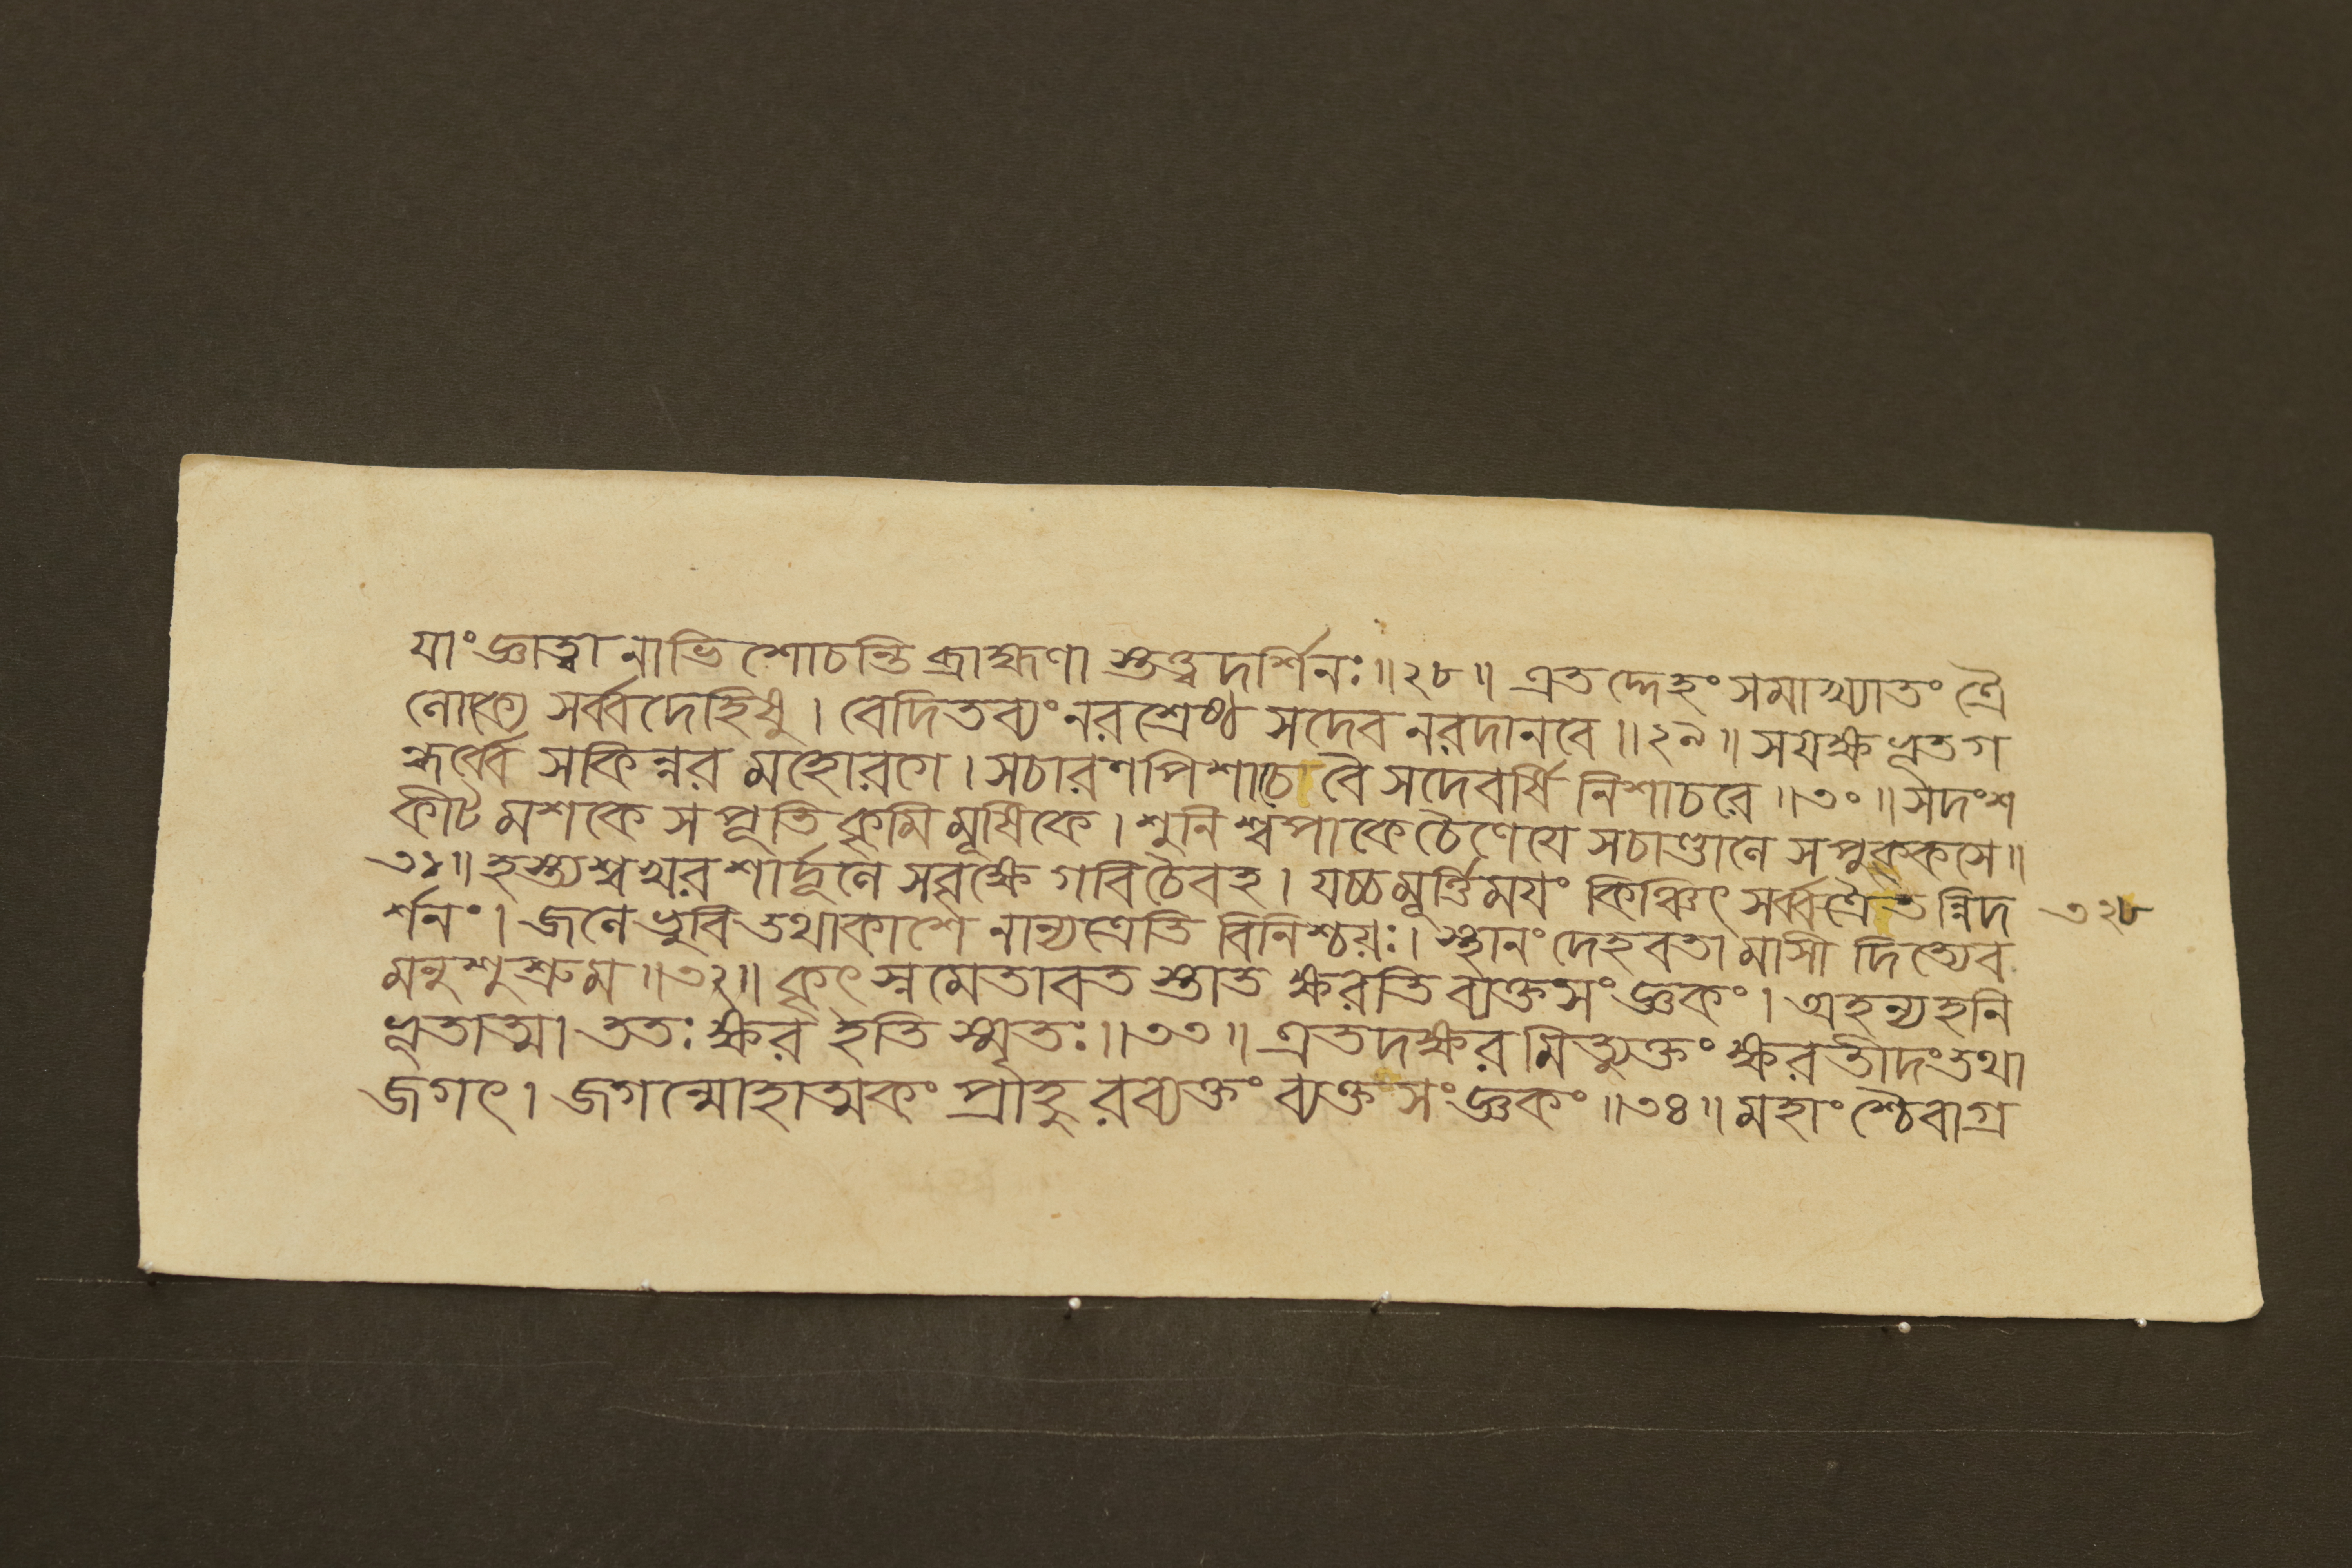 যাং জ্ঞাত্বা নাভিশোচন্তি ব্রাহ্মণা স্তত্ত্বদর্শিনঃ॥২৮॥ এতদ্দেহং সমাখ্যাতং ত্রৈ
লোক্যে সর্ব্বদেহিষু। বেদিতব্যং নরশ্রেষ্ঠ সদেব নরদানবে॥২৯॥ সযক্ষ ভূতগ
ন্ধর্ব্বে সকিন্নর মহোরগে। সচারণপিশাচে বৈ সদেবর্ষি নিশাচরে॥৩০॥ সদংশ
কীট মশকে সপূতি কৃমি মূষিকে। শুনি শ্বপাকে চৈণেযে সচাণ্ডালে সপুক্কসে॥
৩১॥ হস্ত্যশ্বখর শার্দ্দূলে সবৃক্ষে গবি চৈবহ। যচ্চ মূর্ত্তিময়ং কিঞ্চিৎ সর্ব্বত্রৈতন্নিদ
র্শনং। জলে ভুবি তথাকাশে নান্যত্রেতি বিনিশ্চয়ঃ। স্থানং দেহবতা মাসী দিত্যেব
মনুশুশ্রুম॥৩২॥ কৃৎস্নমেতাবত স্তাত ক্ষরতি ব্যক্তসংজ্ঞকং। অহন্যহনি
ভূতাত্মা ততঃ ক্ষর ইতি স্মৃতঃ॥৩৩॥ এতদক্ষরমিত্যুক্তং ক্ষরতীদং তথা
জগৎ। জগন্মোহাত্মকং প্রাহু রব্যক্তং ব্যক্তসংজ্ঞকং॥৩৪॥ মহাংশ্চৈবাগ্র
৩২৮